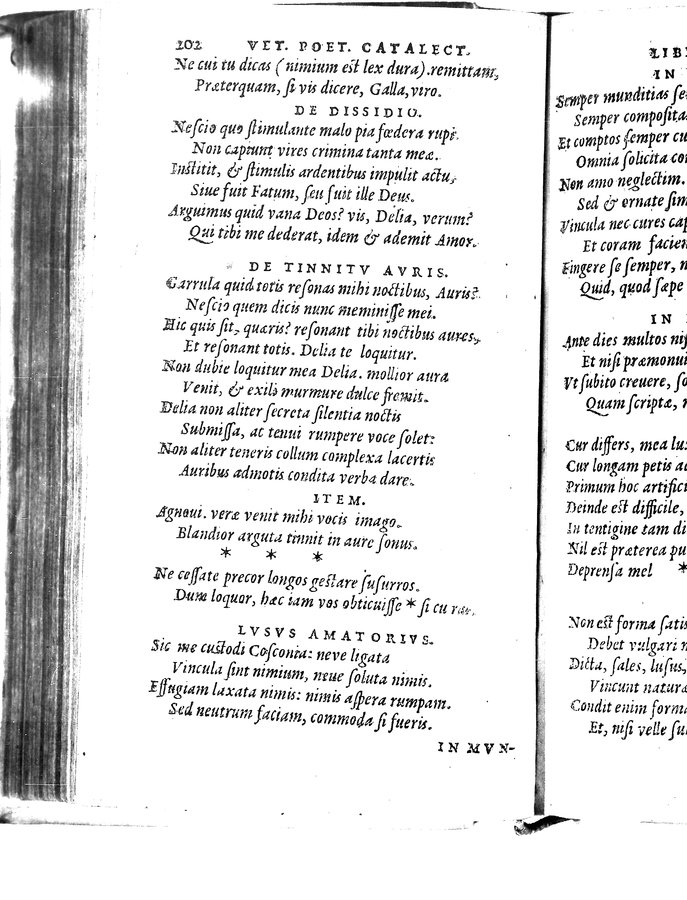 202 VET. POET. CATALECT.
Ne cui tu dicas (nimium est lex dura) remittam,
Præterquam, ſi vis dicere, Galla, viro.
DE DISSIDIO.
Neſcio quo ſtimulante malo pia fœdera rupi.
Non capiunt vires crimina tanta meæ.
Inſtitit, & ſtimulis ardentibus impulit actu,
Siue fuit Fatum, ſeu fuit ille Deus.
Arguimus quid vana Deos? vis, Delia, verum?
Qui tibi me dederat, idem & ademit Amor.
DE TINNITV AVRIS.
Garrula quid totis reſonas mihi noctibus, Auris?
Neſcio quem dicis nunc meminiſſe mei.
Hic quis ſit, quæris? reſonant tibi noctibus aures,
Et reſonant totis. Delia te loquitur.
Non dubie loquitur mea Delia. mollior aura
Venit, & exili murmure dulce fremit.
Delia non aliter ſecreta ſilentia noctis
Submiſſa, ac tenui rumpere voce ſolet:
Non aliter teneris collum complexa lacertis
Auribus admotis condita verba dare.
ITEM.
Agnoui. veræ venit mihi vocis imago.
Blandior arguta tinnit in aure ſonus.
* * *
Ne ceſſate precor longos geſtare ſuſurros.
Dum loquor, hæc iam vos obticuiſſe * ſi cu
LVSVS AMATORIVS.
Sic me cuſtodi Coſconia: neve ligata
Vincula ſint nimium, neue ſoluta nimis.
Effugiam laxata nimis: nimis aſpera rumpam.
Sed neutrum faciam, commoda ſi fueris.
IN MVN-
LIB
IN
Semper munditias ſe
Semper compoſita
Et comptos ſemper cu
Omnia ſolicita co
Non amo neglectim.
Sed & ornate ſim
Vincula nec cures cap
Et coram facien
Fingere ſe ſemper, n
Quid, quod ſæpe
IN
Ante dies multos niſ
Et niſi præmonui
Vt ſubito creuere, ſo
Quam ſcriptæ,
Cur differs, mea lu
Cur longam petis a
Primum hoc artific
Deinde eſt difficile,
In tentigine tam di
Nil eſt præterea pu
Deprenſa mel *
Non eſt forma ſatis
Debet vulgari
Dicta, ſales, luſus,
Vincunt natura
Condit enim forma
Et, niſi velle ſu